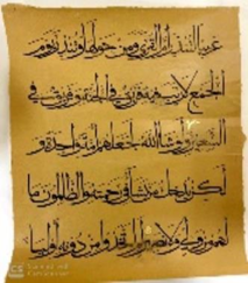 عربيا لتنذر أم القرى ومن حولها وتنذر يوم
الجمع لا ريب فيه فريق في الجنة وفريق في
السعير ولو شاء الله لجعلهم أمة واحدة و
لكن يدخل من يشاء في رحمته والظالمون ما
لهم من ولي ولا نصير أم اتخذوا من دونه أوليا
CS